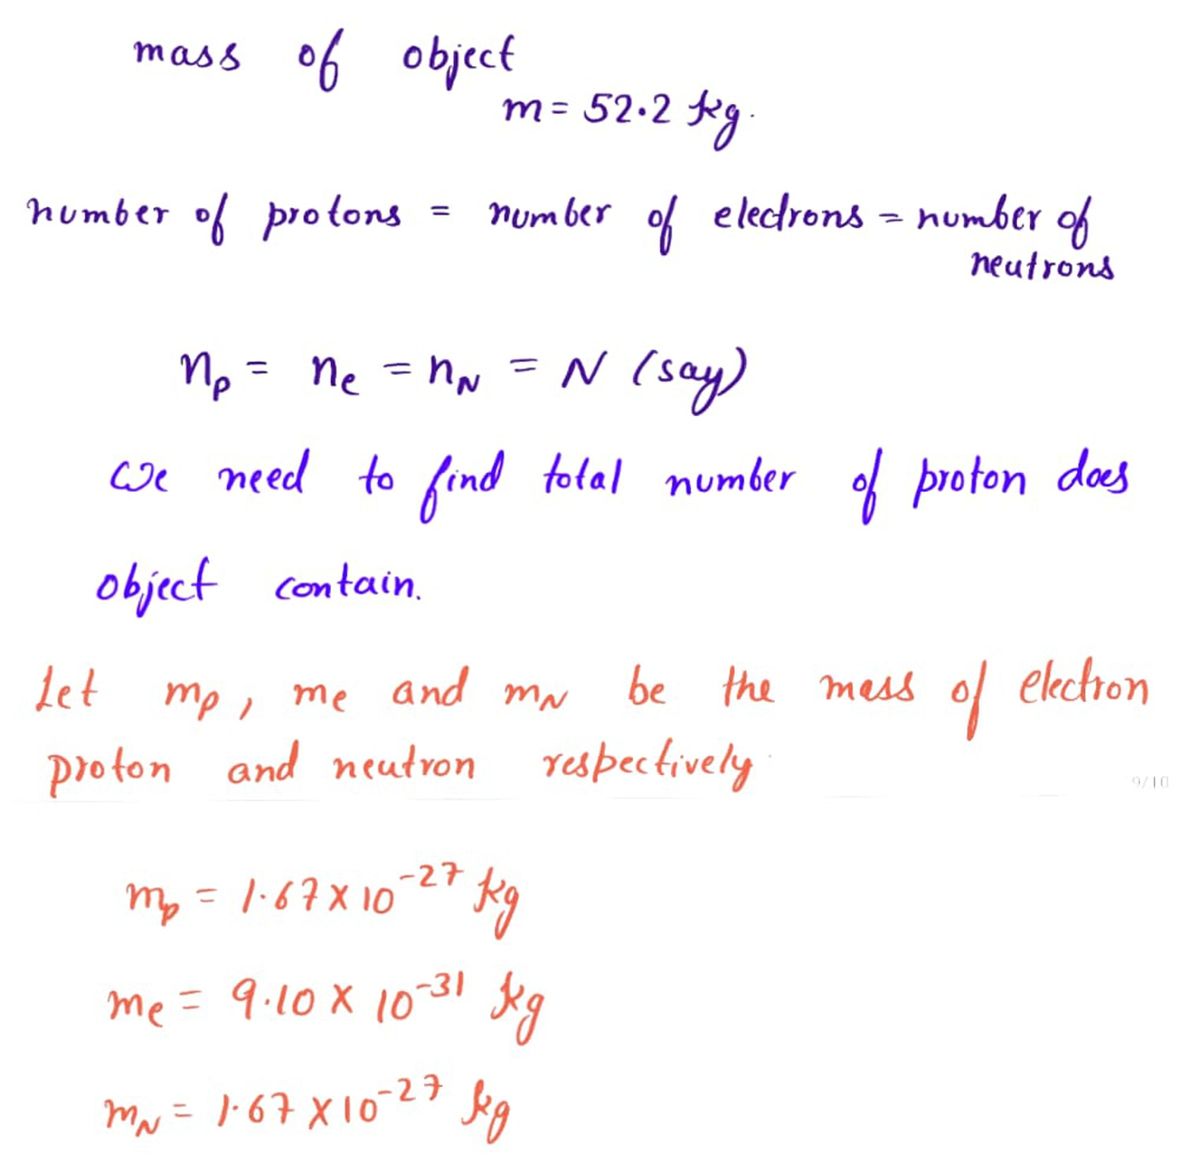 mass of object
m = 52.2 kg.
number of protons = number of electrons = number of
neutrons
nₚ = nₑ = n_N = N (say)
We need to find total number of proton does
object contain.
Let mₚ, mₑ and m_N be the mass of electron
proton and neutron respectively
9/10
mₚ = 1.67 × 10⁻²⁷ kg
mₑ = 9.10 × 10⁻³¹ kg
m_N = 1.67 × 10⁻²⁷ kg